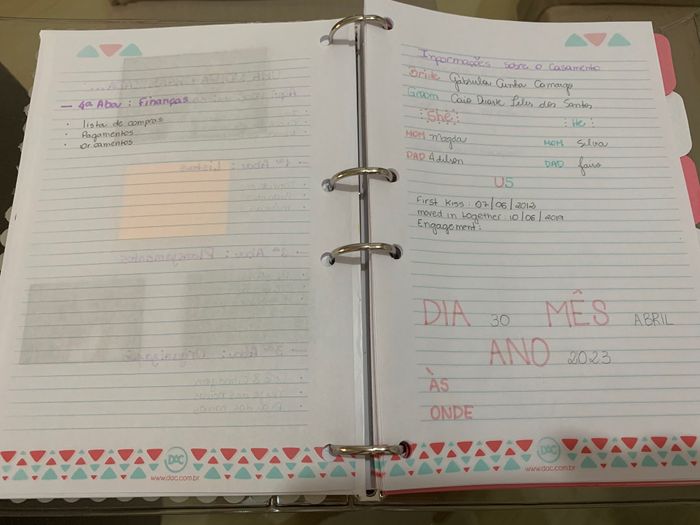 — 4ª Aba: Finanças
• lista de compras
• Pagamentos
• orçamentos
DAC
www.dac.com.br
Informações sobre o Casamento
Bride Gabriela Cunha Camargo
Groom Caio Duarte Teles dos Santos
She He
MOM Magda MOM Silvia
DAD Adilson DAD
US
First Kiss: 07/06/2013
moved in together: 10/06/2019
Engagement:
DIA 30 MÊS ABRIL
ANO 2023
ÀS
ONDE
DAC
www.dac.com.br